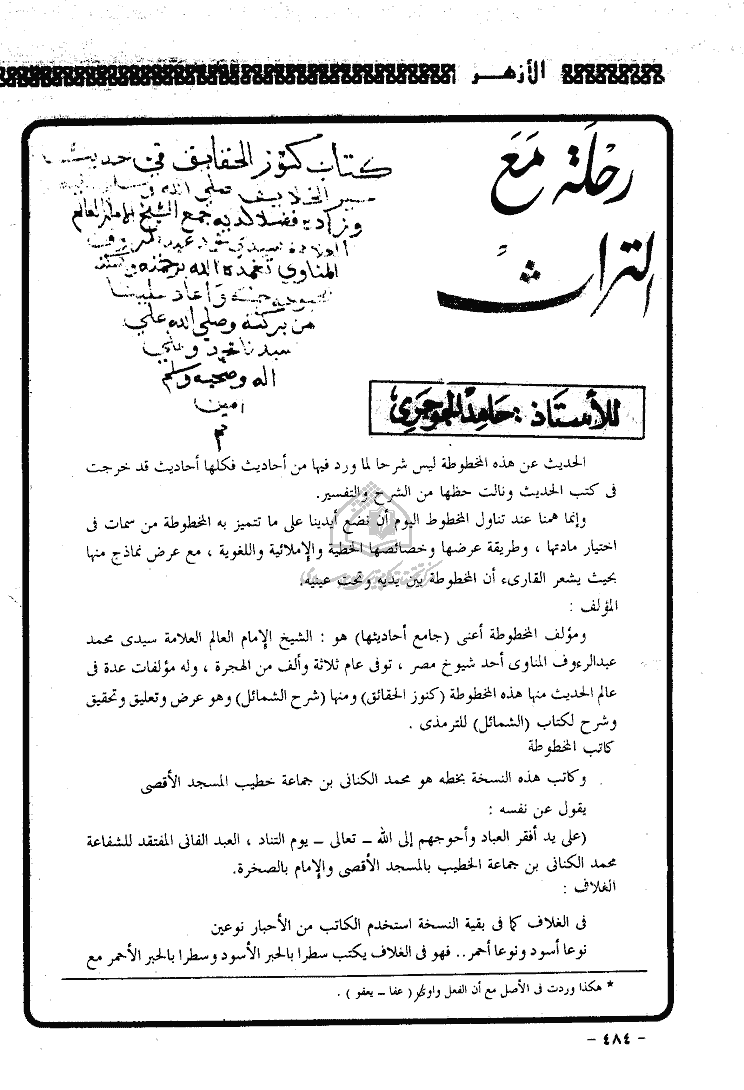 الأزهر
رحلة مع
التراث
كتاب كنوز الحقايق في حديث
خير الخلايق صلي الله
وزاده فضلا لديه جمع الشيخ الامام العالم
سيدي محمد عبد الروف
المناوي تغمده الله برحمته
واعاد علينا
من بركته وصلي الله علي
سيدنا محمد وعلي
اله وصحبه وسلم
امين
م
للأستاذ : حامد الجوجرى
الحديث عن هذه المخطوطة ليس شرحا لما ورد فيها من أحاديث فكلها أحاديث قد خرجت
فى كتب الحديث ونالت حظها من الشرح والتفسير.
وإنما همنا عند تناول المخطوط اليوم أن نضع أيدينا على ما تتميز به المخطوطة من سمات فى
اختيار مادتها ، وطريقة عرضها وخصائصها الخطية والإملائية واللغوية ، مع عرض نماذج منها
بحيث يشعر القارىء أن المخطوطة بين يديه وتحت عينيه.
المؤلف :
ومؤلف المخطوطة أعنى (جامع أحاديثها) هو : الشيخ الإمام العالم العلامة سيدى محمد
عبدالرءوف المناوى أحد شيوخ مصر ، توفى عام ثلاثة وألف من الهجرة ، وله مؤلفات عدة فى
عالم الحديث منها هذه المخطوطة (كنوز الحقائق) ومنها (شرح الشمائل) وهو عرض وتعليق وتحقيق
وشرح لكتاب (الشمائل) للترمذى .
كاتب المخطوطة
وكاتب هذه النسخة بخطه هو محمد الكنانى بن جماعة خطيب المسجد الأقصى
يقول عن نفسه :
(على يد أفقر العباد وأحوجهم إلى الله ـ تعالى ـ يوم التناد ، العبد الفانى المفتقد للشفاعة
محمد الكنانى بن جماعة الخطيب بالمسجد الأقصى والإمام بالصخرة.
الغلاف :
فى الغلاف كما فى بقية النسخة استخدم الكاتب من الأحبار نوعين
نوعا أسود ونوعا أحمر.. فهو فى الغلاف يكتب سطرا بالحبر الأسود وسطرا بالحبر الأحمر مع
* هكذا وردت فى الأصل مع أن الفعل واوى ( عفا ـ يعفو ) .
- ٤٨٤ -